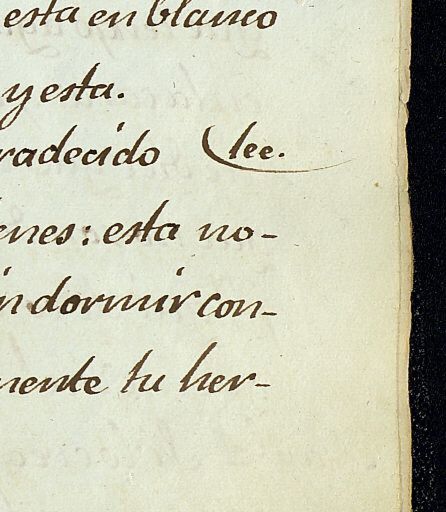 esta en blanco
y esta.
radecido lee.
enes: esta no-
n dormir con-
mente tu her-